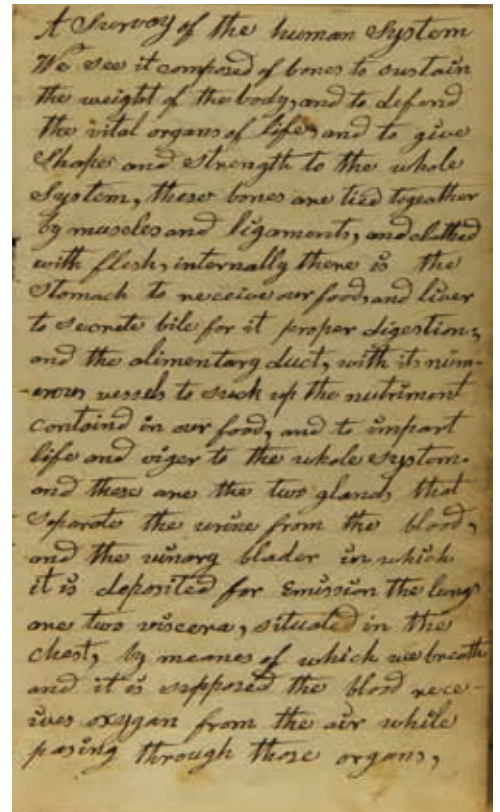 A Survay of the human System
We see it composed of bones to sustain
the weight of the body, and to defend
the vital organs of life, and to give
Shape and strength to the whole
System, these bones are tied togeather
by muscles and ligaments, and clothed
with flesh, internally there is the
Stomach to receive our food, and liver
to secrete bile for it proper digestion,
and the alimentary duct, with its num-
erous vessels to suck up the nutriment
containd in our food, and to impart
life and viger to the whole system.
and these are the two glands that
separate the urine from the blood,
and the urinary blader in which
it is deposited for Emission the lungs
are two viscera, situated in the
chest, by meanes of which we breath
and it is supposed the blood rece-
ives oxygan from the air while
pasing through those organs,